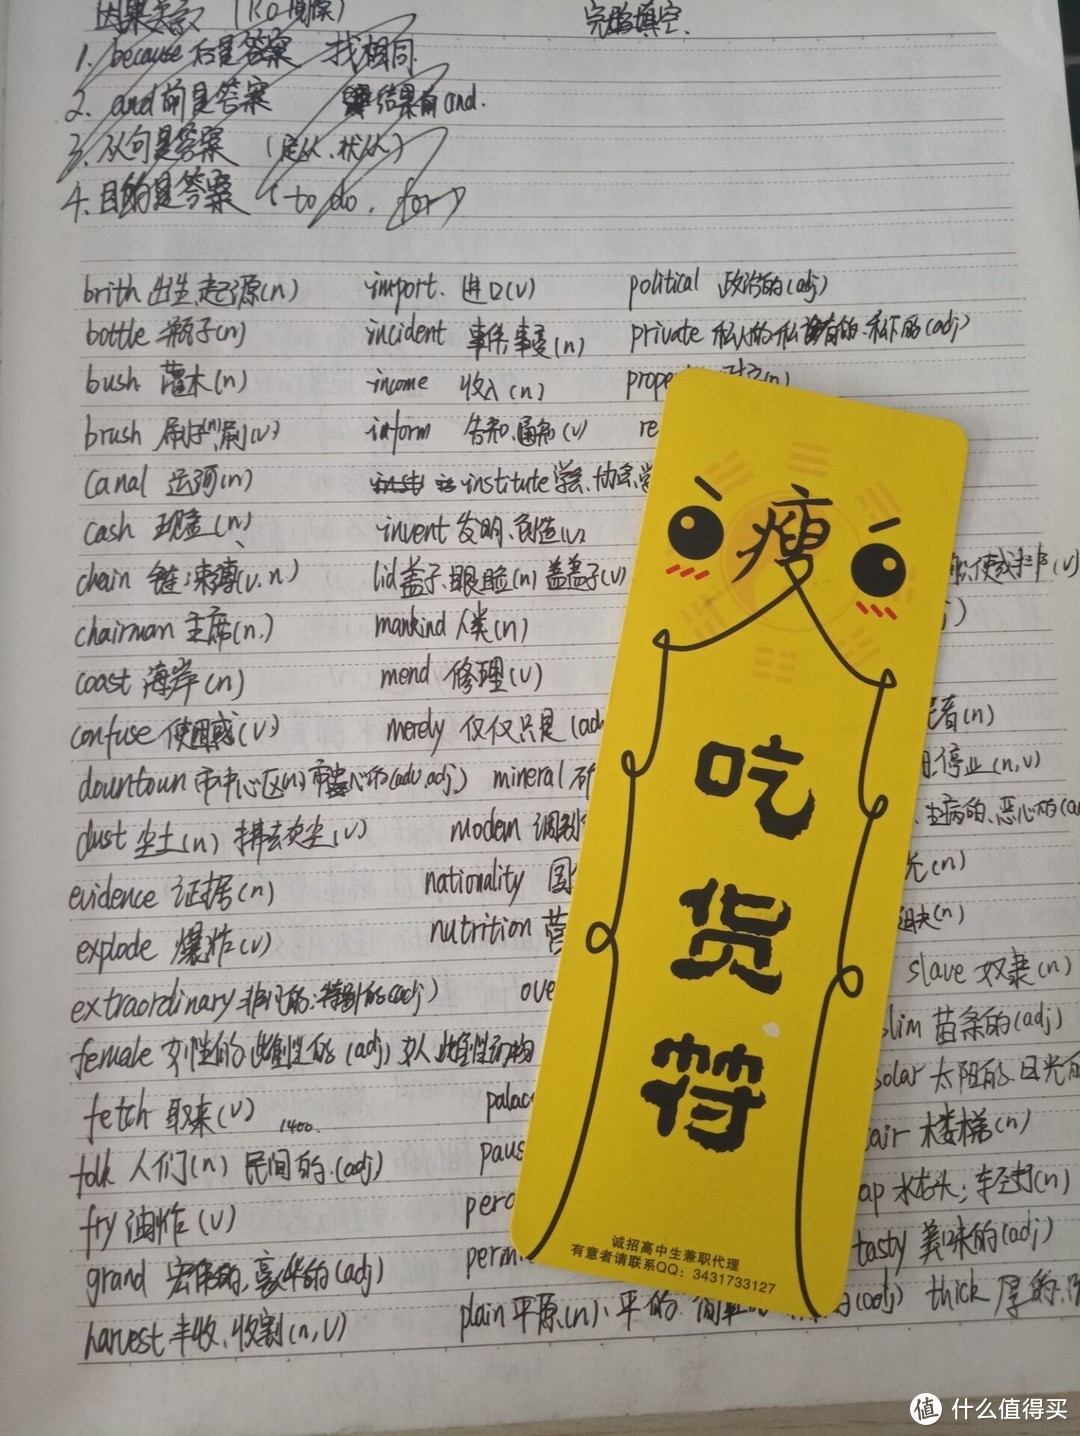 因果关系 完形填空
1. because后是答案 找相同
2. and前是答案 结果有and.
3. 从句是答案 (定从、状从)
4. 目的是答案 (to do, for)
brith 出生、起源(n) import. 进口(v) political 政治的(adj)
bottle 瓶子(n) incident 事件、事变(n) private 私人的、私有的、私下的(adj)
bush 灌木(n) income 收入(n)
brush 刷子(n)、刷(v) inform 告知、通知(v) re
canal 运河(n) institute 学会、协会、学
cash 现金(n) invent 发明、创造(v)
chain 链;束缚(v.n) lid 盖子、眼睑(n) 盖盖子(v)
chairman 主席(n.) mankind 人类(n)
coast 海岸(n) mend 修理(v)
confuse 使困惑(v) merely 仅仅只是(ad (n)
downtown 市中心区(n) 市中心的(adv.adj) mineral 停业(n,v)
dust 尘土(n) 拂去灰尘(v) modem 调制 生病的、恶心的(a
evidence 证据(n) nationality 国 (n)
explode 爆炸(v) nutrition 营 (n)
extraordinary 非凡的;特别的(adj) ove slave 奴隶(n)
female 女性的、雌性的(adj) 女人、雌性动物 slim 苗条的(adj)
fetch 取来(v) 1400. palac solar 太阳的、日光的
folk 人们(n) 民间的.(adj) paus air 楼梯(n)
fry 油炸(v) perc ap 水龙头;轻打(n)
grand 宏伟的,豪华的(adj) perm tasty 美味的(adj)
harvest 丰收、收割(n,v) plain 平原(n)、平的 (adj) thick 厚的
瘦
吃
货
符
诚招高中生兼职代理
有意者请联系QQ：3431733127
值 什么值得买